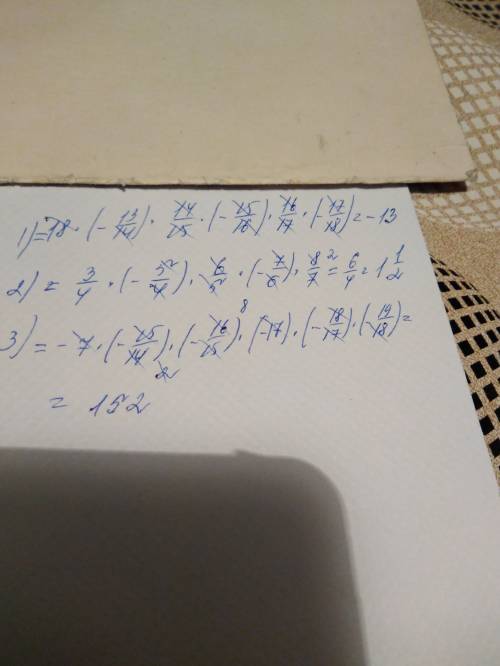 1) = 18 · (-13/14) · 14/15 · (-15/16) · 16/17 · (-17/18) = -13
2) = 3/4 · (-5/4) · 6/5 · (-7/6) · 8/7 2 = 6/4 = 1 1/2
3) = -7 · (-15/14) 2 · (-16/15) 8 · (-17) · (-18/17) · (19/18) =
= 152